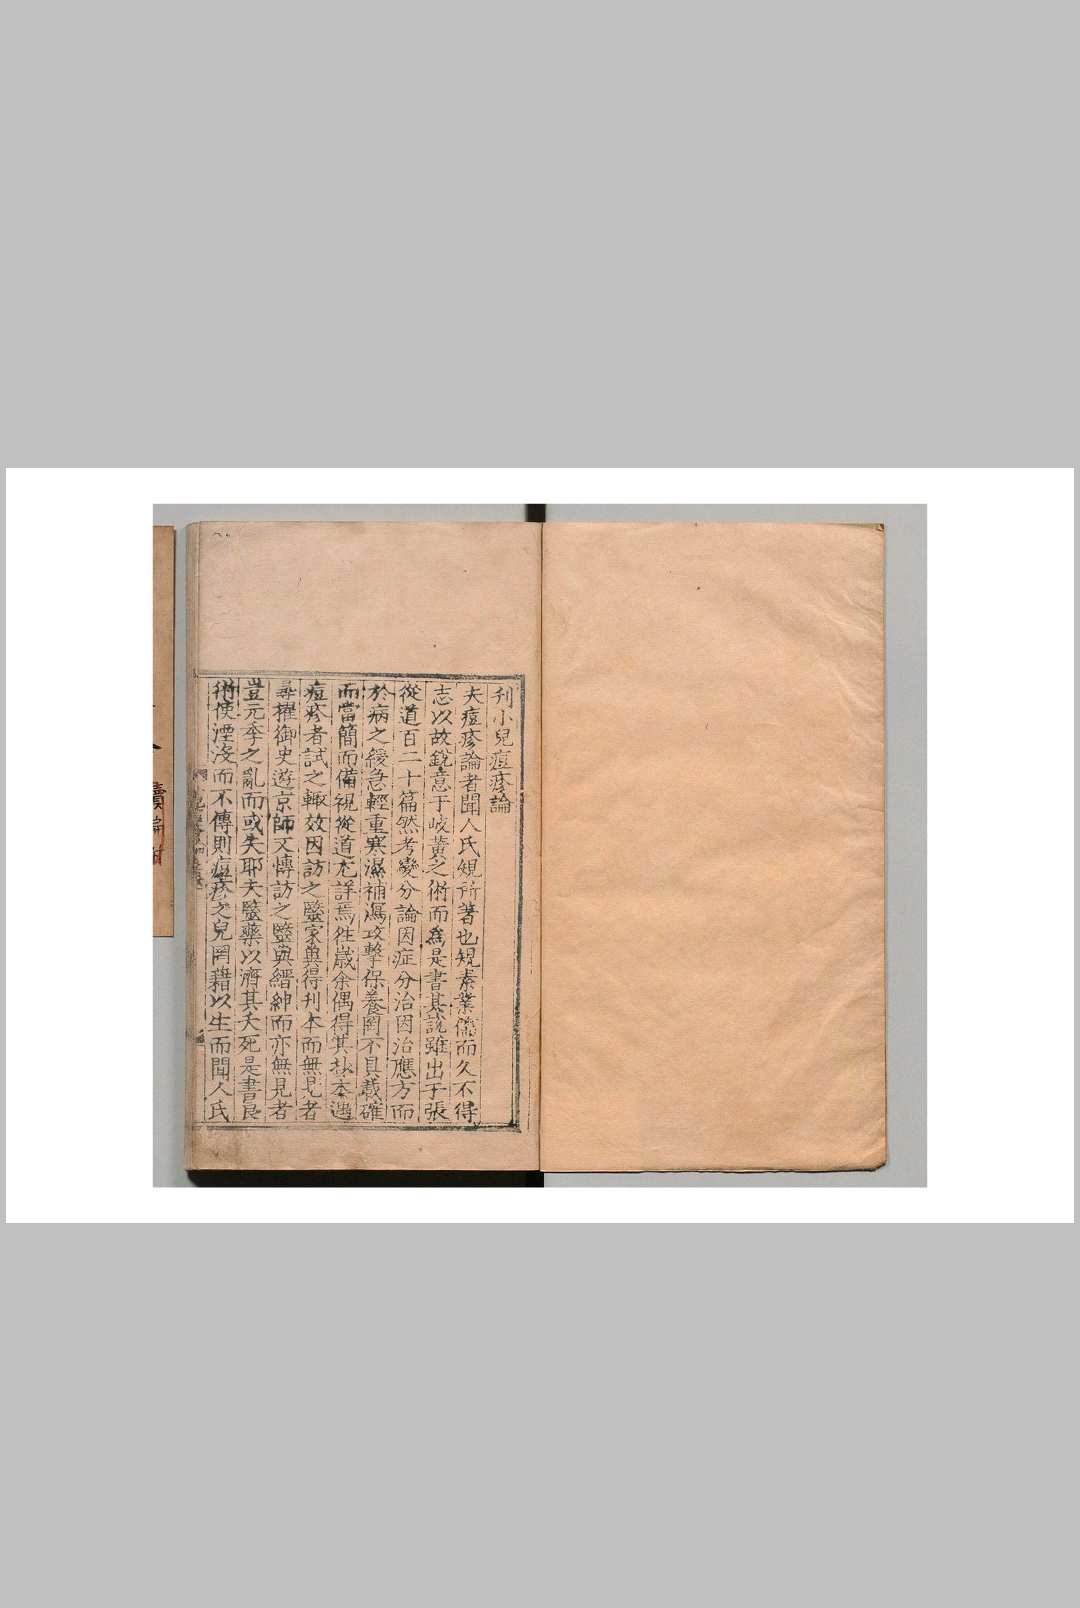 刋小兒痘疹論
夫痘疹論者聞人氏規所著也規素業儒而久不得
志以故銳意于岐黃之術而爲是書其說雖出于張
從道百二十篇然考變分論因症分治因治應方而
於病之緩急輕重寒濕補瀉攻擊保養罔不具載確
而當簡而備視從道尤詳焉徃歲余偶得其抄本遇
痘疹者試之輙效因訪之醫家與得刋本而無見者
尋擢御史遊京師又慱訪之醫與縉紳而亦無見者
豈元季之亂而或失耶夫醫藥以濟其夭死是書良
術使湮沒而不傳則痘疹之兒罔藉以生而聞人氏
續編